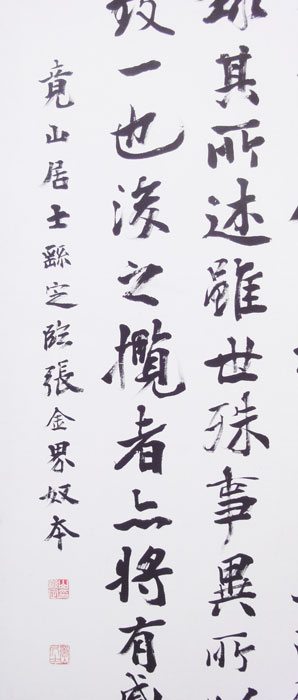 錄其所述雖世殊事異所以
致一也後之攬者亦將有感
竟山居士繇定臨張金界奴本